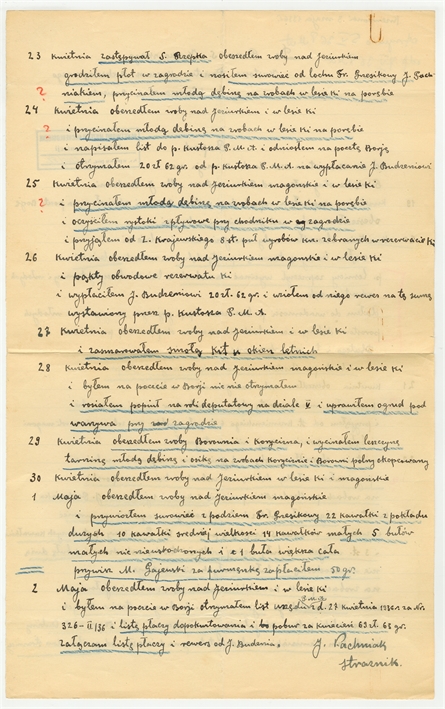 23 Kwietnia zastępywał S. Rzepka obeszedłem zroby nad Jeziurkiem
grodziłem płot w zagrodzie i nosiłem surowieć od lochu Fr. Gresikowy J. Pach
? niakiem, przycinałem młodą dębinę na zrobach w lesie Ki na porębie
24 Kwietnia obeszedłem zroby nad Jeziurkiem i w lesie Ki
? i przycinałem młodą dębinę na zrobach w lesie Ki na porębie
i napisałem list do p. Kustosza P.M.A. i odniosłem na pocztę Borję
i otrymałem 20 zł 62 gr. od p. Kustosza P.M.A. na wypłacanie J. Budzeniowi
25 Kwietnia obeszedłem zroby nad Jeziurkiem magońskie i w lesie Ki
? i przycinałem młodą dębinę na zrobach w lesie Ki na porębie
i oczyściłem rystoki spływowe pry chodniku w zagrodzie
i przyjąłem od Z. Krajewskiego 8 st. puł wyrobów kw. zebranych w rezerwacie Ki
26 Kwietnia obeszedłem zroby nad Jeziurkiem magonskie i w lesie Ki
i pąkty obwodowe rezerwatu Ki
i wypłaciłem J. Budzeniowi 20 zł. 62 gr. i wziołem od niego rewers na tę sumę
wystawiony przez p. Kustosza P.M.A.
27 Kwietnia obeszedłem zroby nad Jeziurkiem i w lesie Ki
i zasmarowałem smołą Kit u okien letnich
28 Kwietnia obeszedłem zroby nad Jeziurkiem magońskie i w lesie Ki
i byłem na poczcie w Borji nic nie otrymałem
i rosiałem popiuł na roli deputatowy na dziale V i uprawiłem ogrud pod
warzywa pry zagrodzie
29 Kwietnia obeszedłem zroby Borownia i Korycizna, i wycinałem leszczynę
tarninę młodą dębinę i osikę na zrobach Koryciznie i Borowni
30 Kwietnia obeszedłem zroby nad Jeziurkiem w lesie Ki i magonskie
1 Maja obeszedłem zroby nad Jeziurkiem magońskie
i przywiozłem surowieć z podziem Fr. Gresikowy 22 kawałki z pokładu
dużych 10 kawałki sredniej wielkosci 14 kawałków małych 5 butów
małych nie nieuszkodzonych i 1 buła większa cała
przywiuz M. Gajewski za furmankę zapłaciłem 50 gr.
2 Maja obeszedłem zroby nad Jeziurkiem i w lesie Ki
i byłem na poczcie w Borji otrymałem list z d. 27 Kwietnia 1936 r. za Nr.
326-II/36 i listę płaczy do pokwitowania i pobur za Kwiecień 63 zł. 63 gr.
załączam listę płaczy i rewers od J. Budenia. J. Pachniak
strażnik.